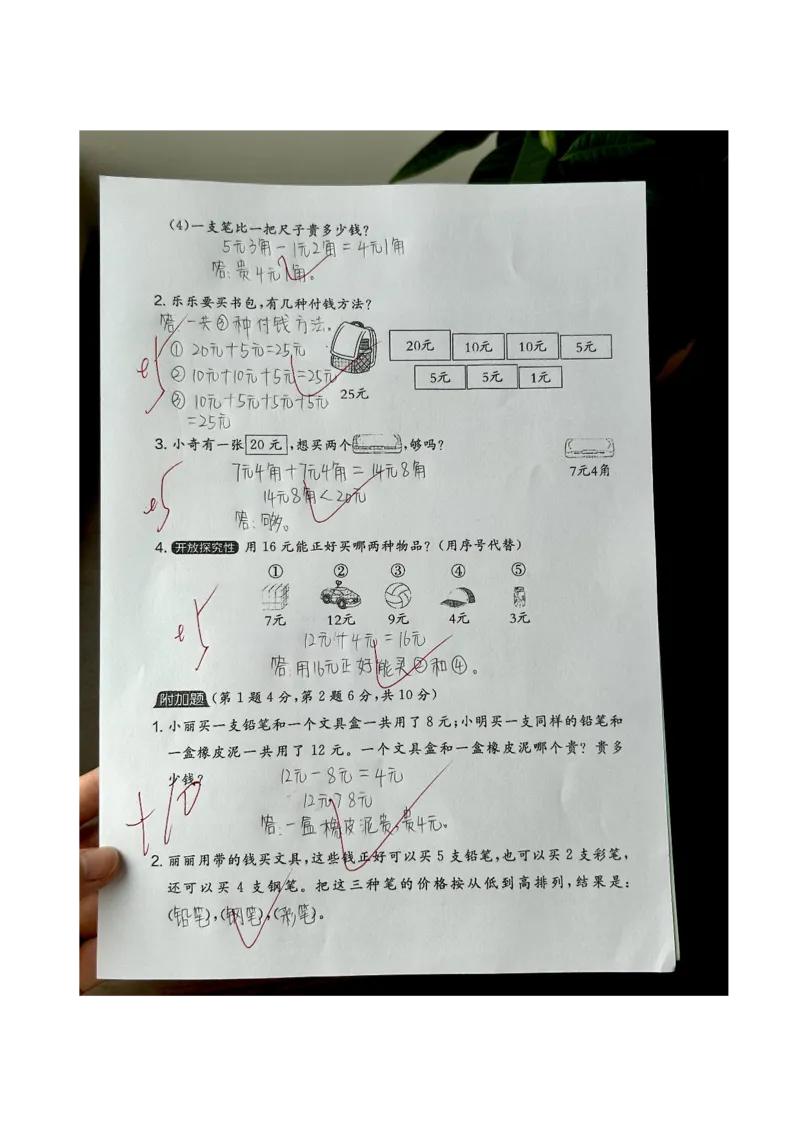 (4)一支笔比一把尺子贵多少钱?
5元3角－1元2角＝4元1角
答:贵4元1角。
2. 乐乐要买书包,有几种付钱方法?
答:一共③种付钱方法。
① 20元＋5元=25元
② 10元＋10元＋5元=25元
③ 10元＋5元＋5元＋5元
=25元
25元
20元 10元 10元 5元
5元 5元 1元
3. 小奇有一张 20 元 ,想买两个 ,够吗?
7元4角
7元4角＋7元4角＝14元8角
14元8角＜20元
答:够。
4. 开放探究性 用 16 元能正好买哪两种物品? (用序号代替)
① ② ③ ④ ⑤
7元 12元 9元 4元 3元
12元＋4元＝16元
答:用16元正好能买②和④。
附加题 (第 1 题 4 分,第 2 题 6 分,共 10 分)
1. 小丽买一支铅笔和一个文具盒一共用了 8 元;小明买一支同样的铅笔和
一盒橡皮泥一共用了 12 元。一个文具盒和一盒橡皮泥哪个贵? 贵多
少钱?
12元－8元＝4元
12元＞8元
答:一盒橡皮泥贵,贵4元。
+10
2. 丽丽用带的钱买文具,这些钱正好可以买 5 支铅笔,也可以买 2 支彩笔,
还可以买 4 支钢笔。把这三种笔的价格按从低到高排列,结果是:
(铅笔),(钢笔),(彩笔)。